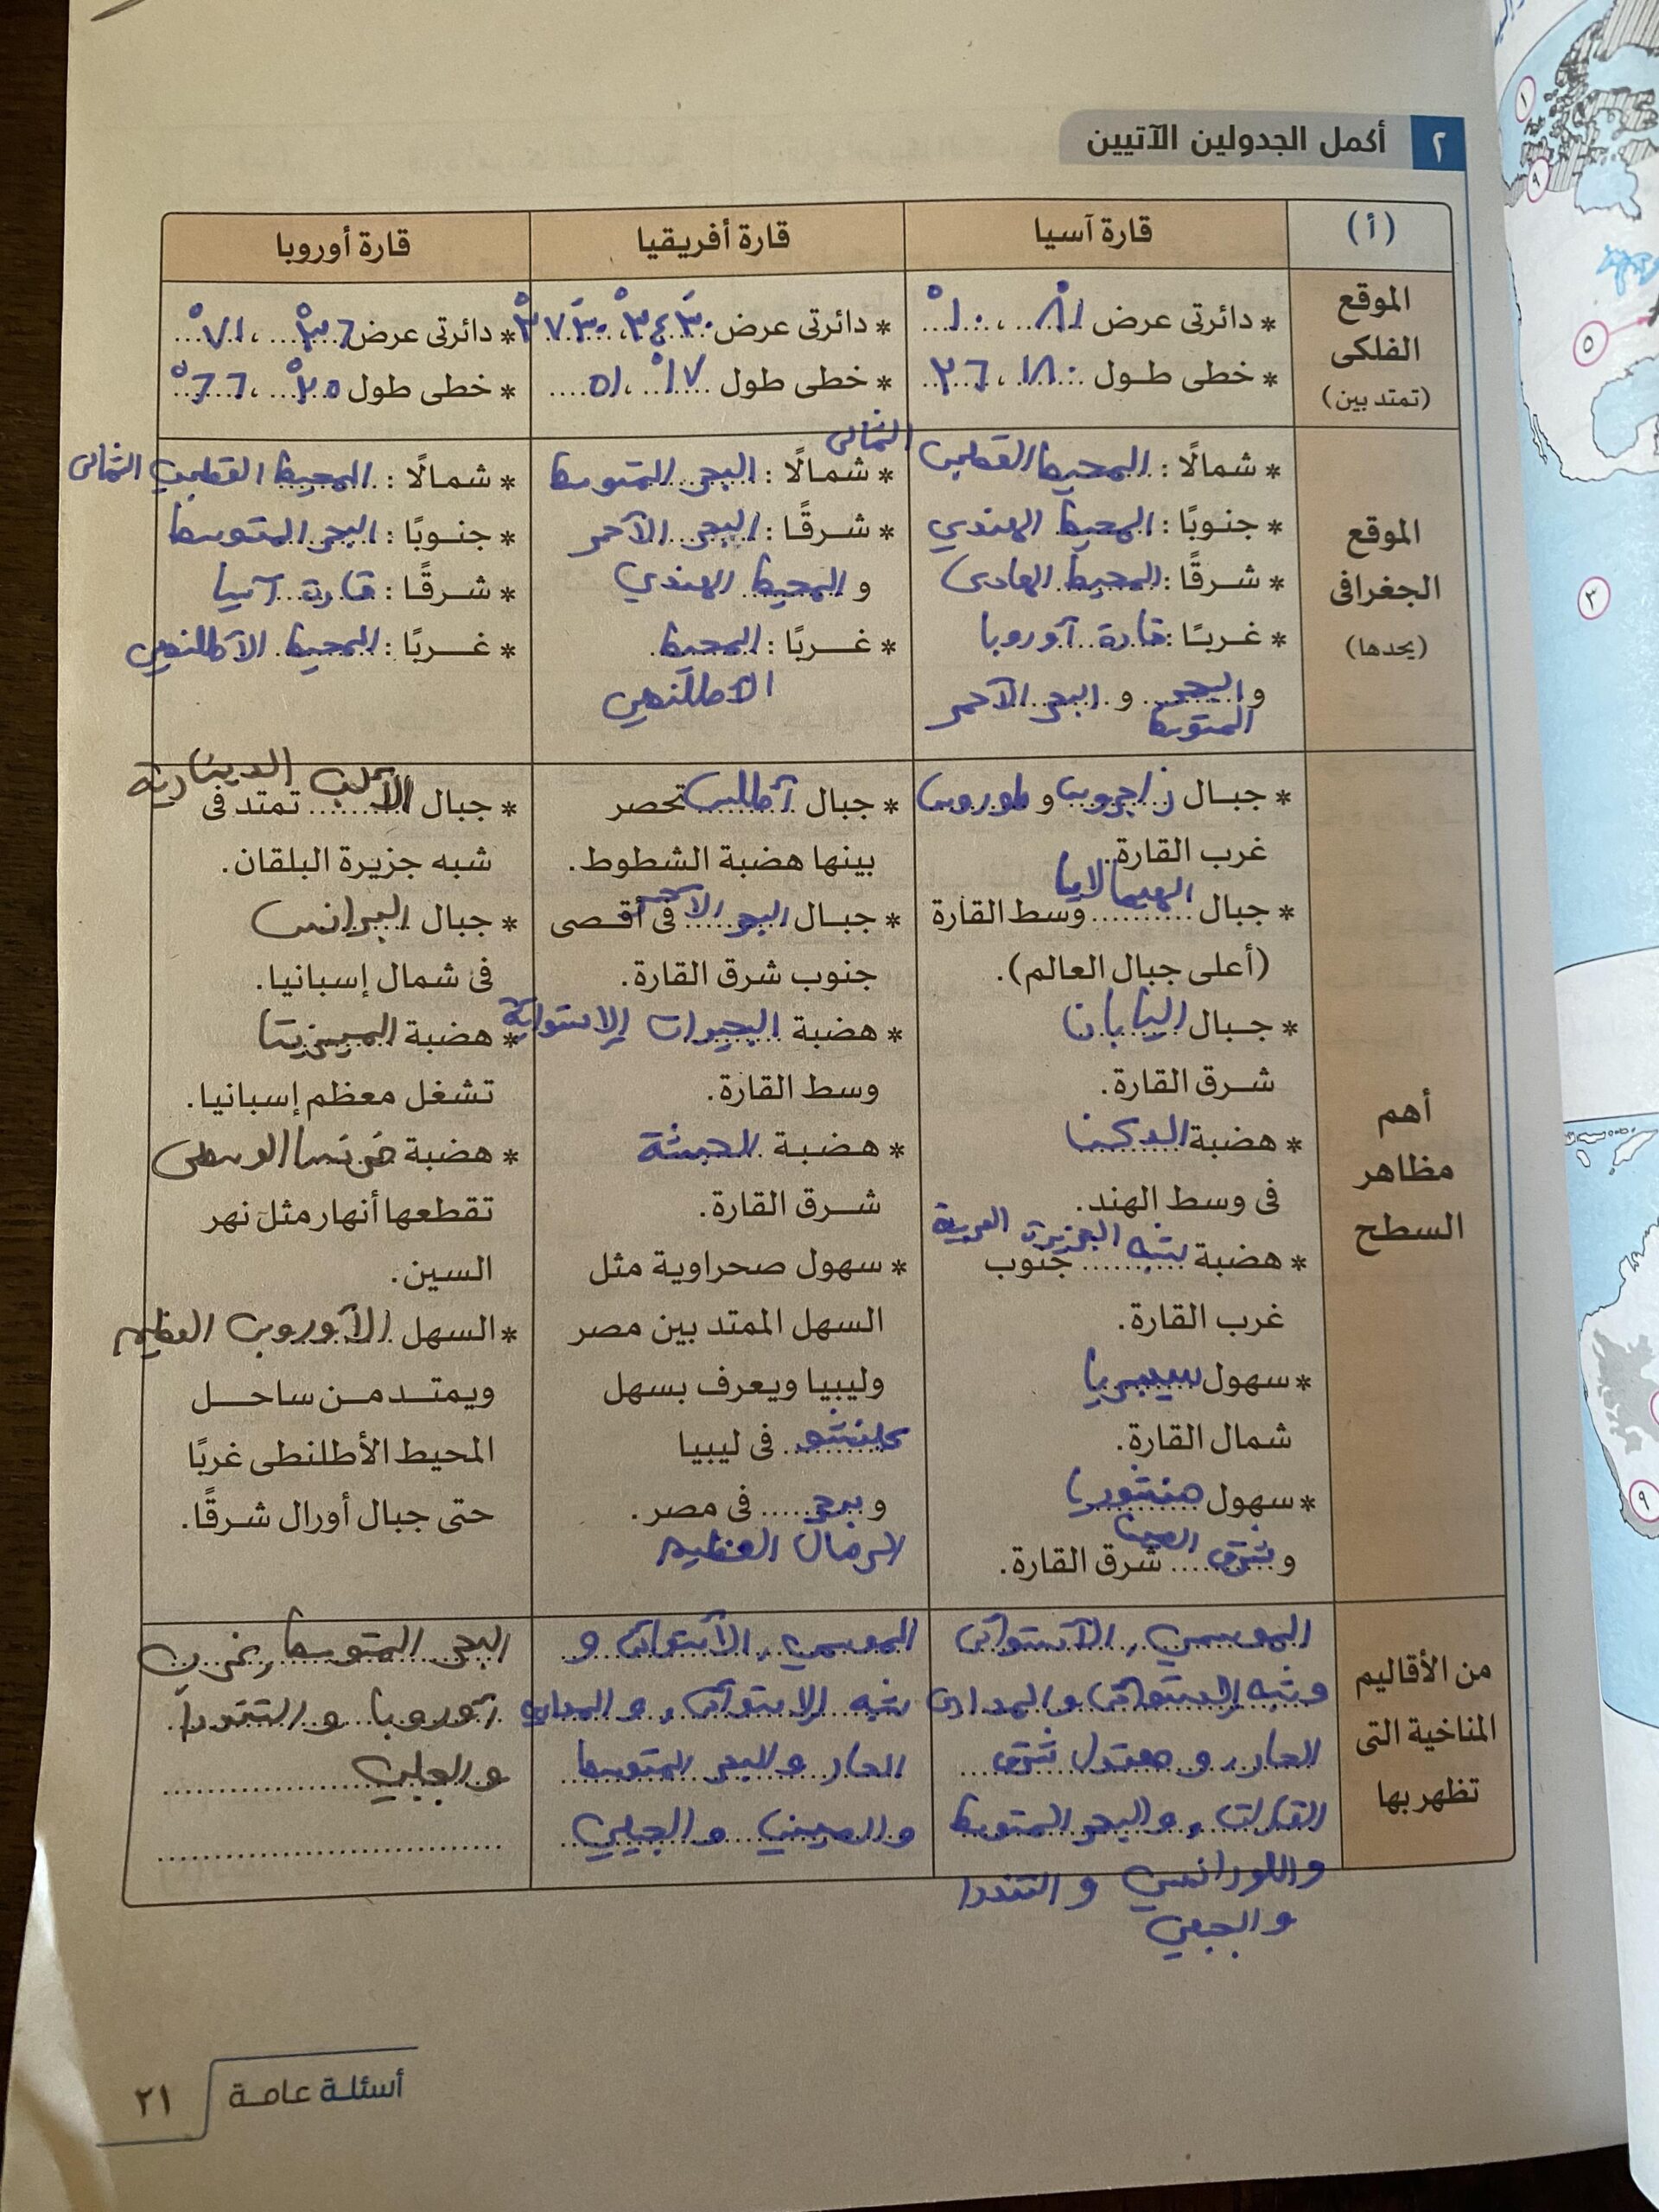 ٢ أكمل الجدولين الآتيين
(أ) قارة آسيا قارة أفريقيا قارة أوروبا
الموقع الفلكى (تمتد بين)
* دائرتى عرض ٨١°، ١٠°
* خطى طول ١٨٠، ٢٦
* دائرتى عرض ٣٤ ٣٠، ٣٧ ٣٠
* خطى طول ١٧°، ٥١
* دائرتى عرض ٣٦°، ٧١°
* خطى طول ٢٥°، ٦٦°
الموقع الجغرافى (يحدها)
* شمالًا : المحيط القطبي الشمالى
* جنوبًا : المحيط الهندي
* شرقًا : المحيط الهادى
* غربًا : قارة آوروبا
والبحر المتوسط و البحر الآحمر
* شمالًا : البحر المتوسط
* شرقًا : البحر الآحمر
و المحيط الهندي
* غربًا : المحيط
الآطلنطي
* شمالًا : المحيط القطبي الشمالى
* جنوبًا : البحر المتوسط
* شرقًا : قارة آسيا
* غربًا : المحيط الآطلنطي
أهم مظاهر السطح
* جبال زاجروس و طوروس
غرب القارة.
* جبال الهيمالايا وسط القارة
(أعلى جبال العالم).
* جبال اليابان
شرق القارة.
* هضبة الدكن
فى وسط الهند.
* هضبة شبه الجزيرة العربية جنوب
غرب القارة.
* سهول سيبريا
شمال القارة.
* سهول منشوريا
و شرق الصين شرق القارة.
* جبال آطلس تحصر
بينها هضبة الشطوط.
* جبال البحر الآحمر فى أقصى
جنوب شرق القارة.
* هضبة البحيرات الإستوائية
وسط القارة.
* هضبة الحبشة
شرق القارة.
* سهول صحراوية مثل
السهل الممتد بين مصر
وليبيا ويعرف بسهل
كلنشو فى ليبيا
و بحر فى مصر.
الرمال العظيم
* جبال الآلب الدينارية تمتد فى
شبه جزيرة البلقان.
* جبال البرانس
فى شمال إسبانيا.
* هضبة الميزيتا
تشغل معظم إسبانيا.
* هضبة فرنسا الوسطى
تقطعها أنهار مثل نهر
السين.
* السهل الآوروبي العظيم
ويمتد من ساحل
المحيط الأطلنطى غربًا
حتى جبال أورال شرقًا.
من الأقاليم المناخية التى تظهر بها
الموسمي، الآستوائى
وشبه الإستوائى والمدارى
الحار، و معتدل شرق
القارات، والبحر المتوسط
واللورانسي والتندرا
والجبلي
الموسمي، الآستوائى و
شبه الإستوائى، و المدارى
الحار والبحر المتوسط
والصيني والجبلي
البحر المتوسط، غرب
آوروبا والتندرا
والجبلي
أسئلة عامة ٢١
١
٩
٥
٣
٩